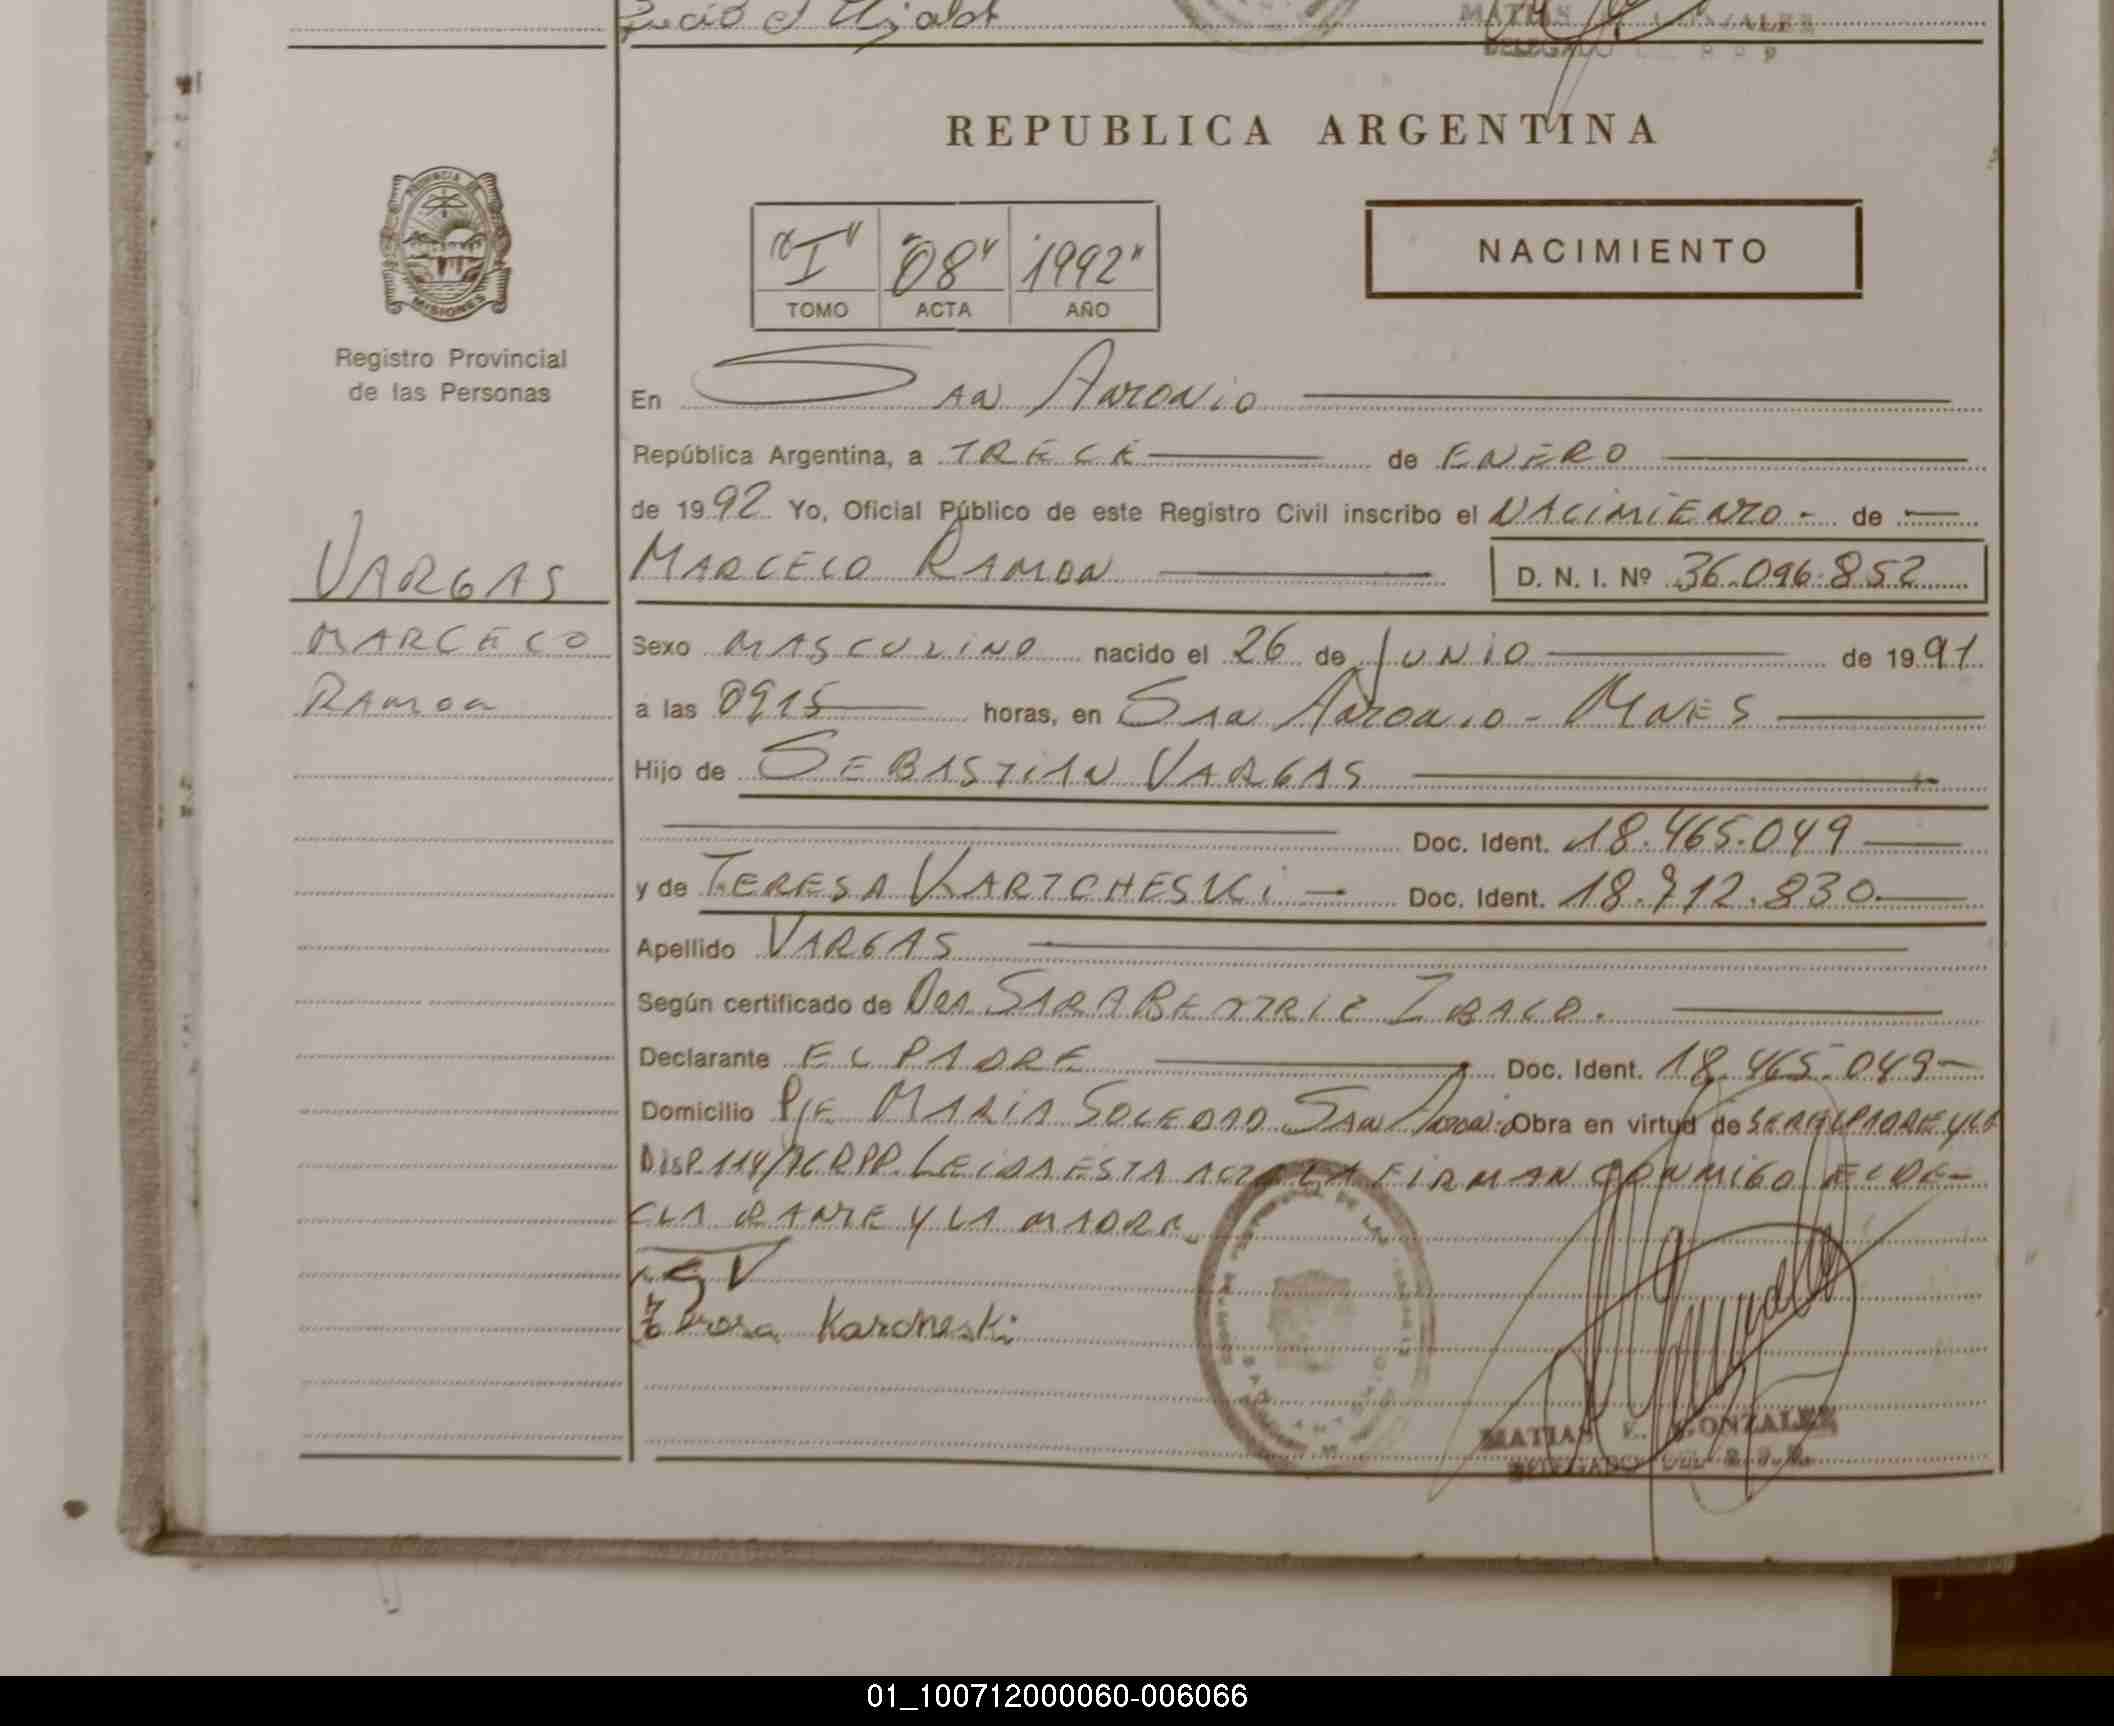 MATIAS GONZALEZ
DELEGADO
REPUBLICA ARGENTINA
PROVINCIA DE
MISIONES
Registro Provincial
de las Personas
"I" "08" "1992"
TOMO ACTA AÑO
NACIMIENTO
En San Antonio
República Argentina, a TRECE de ENERO
de 1992 Yo, Oficial Público de este Registro Civil inscribo el NACIMIENTO - de
VARGAS
MARCELO
RAMON
MARCELO RAMON D. N. I. Nº 36.096.852
Sexo MASCULINO nacido el 26 de JUNIO de 1991
a las 0915 horas, en San Antonio - Mnes
Hijo de SEBASTIAN VARGAS
Doc. Ident. 18.465.049
y de TERESA KARTCHESKI - Doc. Ident. 18.712.830
Apellido VARGAS
Según certificado de Dra. SARA BEATRIZ
Declarante EL PADRE Doc. Ident. 18.465.049
Domicilio Pje MARIA SOLEDAD San Antonio Obra en virtud de SER EL PADRE y LA
DISP. 114/76 RPP. LEIDA ESTA ACTA LA FIRMAN CONMIGO EL DE-
CLARANTE Y LA MADRE.
MATIAS E. GONZALEZ
DELEGADO DEL R.P.P.
01_100712000060-006066